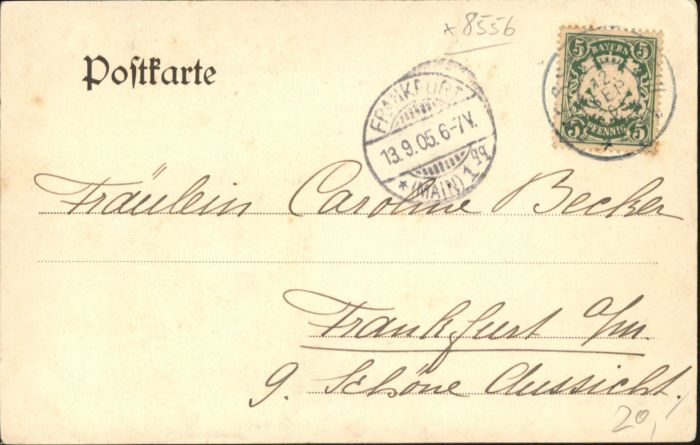 * 8556
Postkarte
5 BAYERN 5
5 PFENNIG 5
12 SEP
FRANKFURT
13.9.05. 6-7V.
* (MAIN) 1. qq
Fräulein Caroline Becker
Frankfurt a/m.
9. Schöne Aussicht.
20,